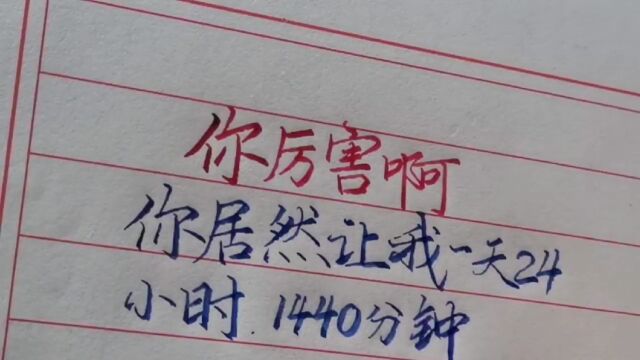 你厉害啊
你居然让我一天24
小时.1440分钟